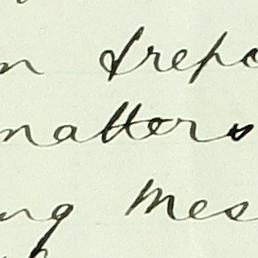 n I repo
matters
ng Mes